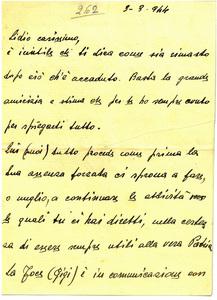 262
3-8-944
Lidio carissimo,
è inutile che ti dica come sia rimasto
dopo ciò ch'è accaduto. Basta la grande
amicizia e stima che per te ho sempre avuto
per spiegarti tutto.
Qui (noi) tutto procede come prima la
tua assenza forzata ci sprona a fare,
o meglio, a continuare le attività
le quali tu ci hai diretti, nella certez
za di essere sempre utili alla vera Patria
La Foce (Gigi) è in comunicazione con